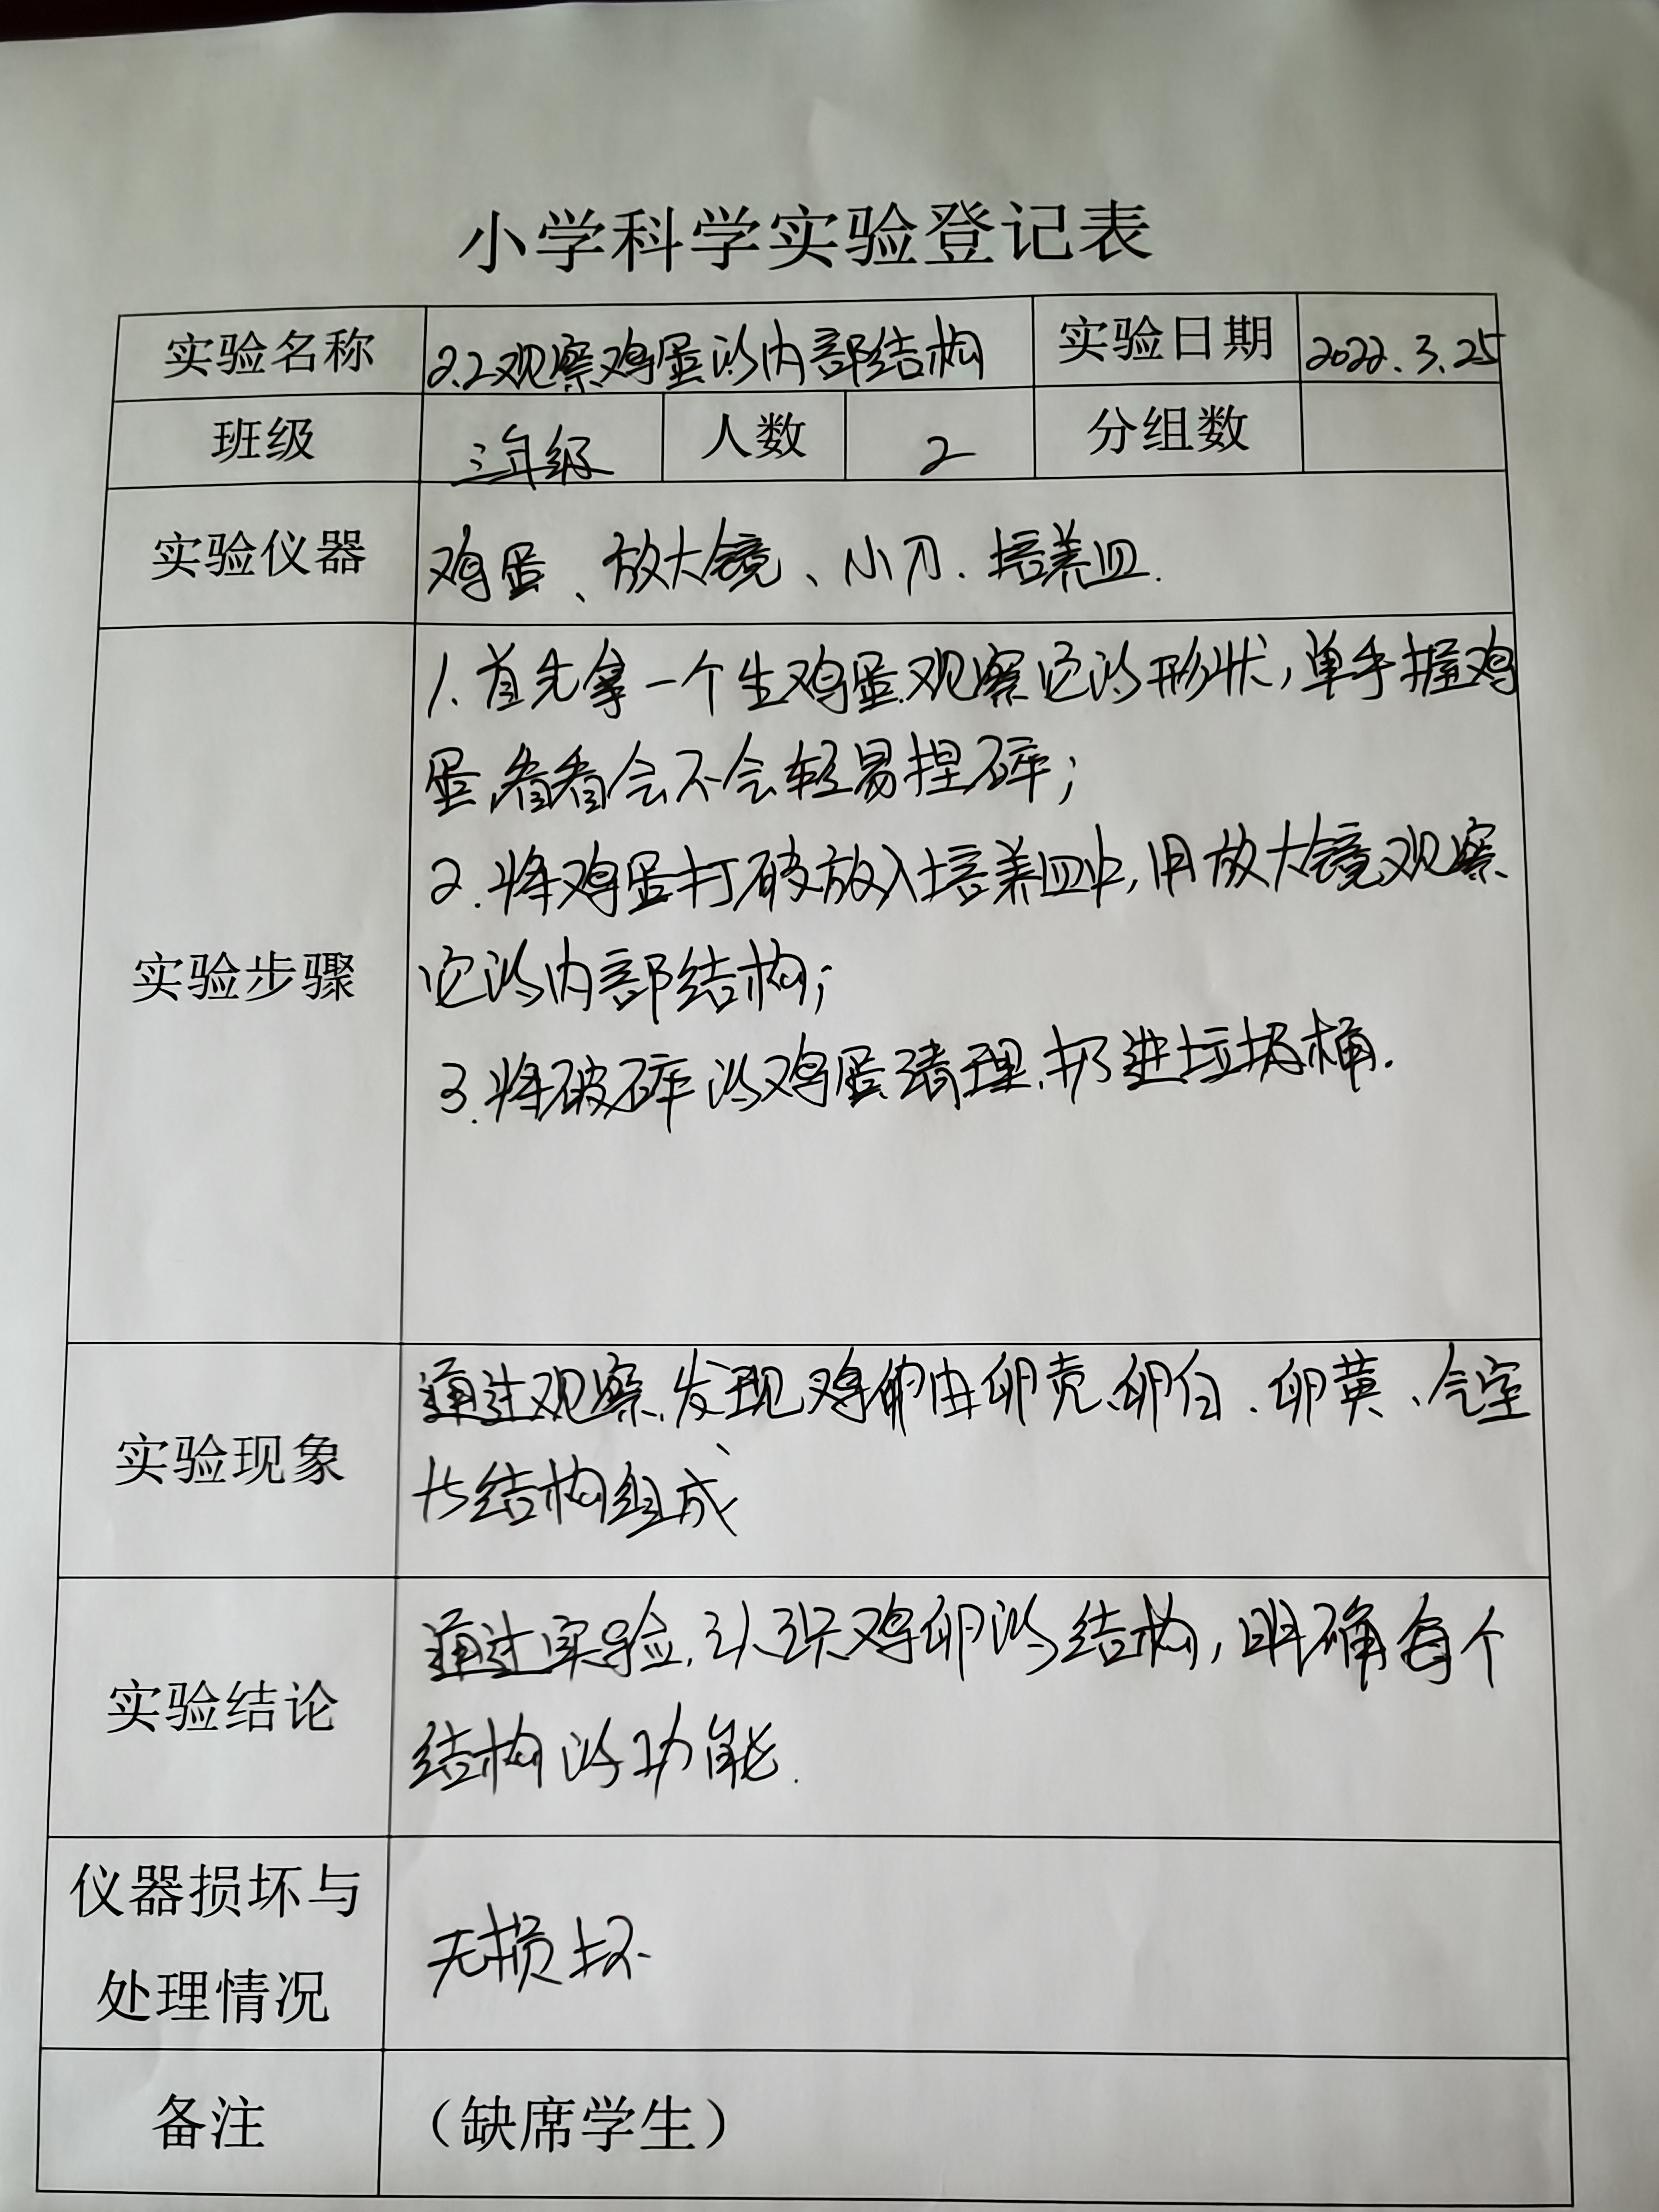 小学科学实验登记表
实验名称 2.2观察鸡蛋的内部结构 实验日期 2022.3.25
班级 三年级 人数 2 分组数
实验仪器 鸡蛋、放大镜、小刀、培养皿.
实验步骤
1.首先拿一个生鸡蛋,观察它的形状,单手握鸡
蛋,看看会不会轻易捏碎;
2.将鸡蛋打破放入培养皿中,用放大镜观察
它的内部结构;
3.将破碎的鸡蛋清理,扔进垃圾桶.
实验现象
通过观察,发现鸡卵由卵壳、卵白、卵黄、气室
等结构组成
实验结论
通过实验,认识鸡卵的结构,明确每个
结构的功能.
仪器损坏与
处理情况
无损坏
备注 （缺席学生）